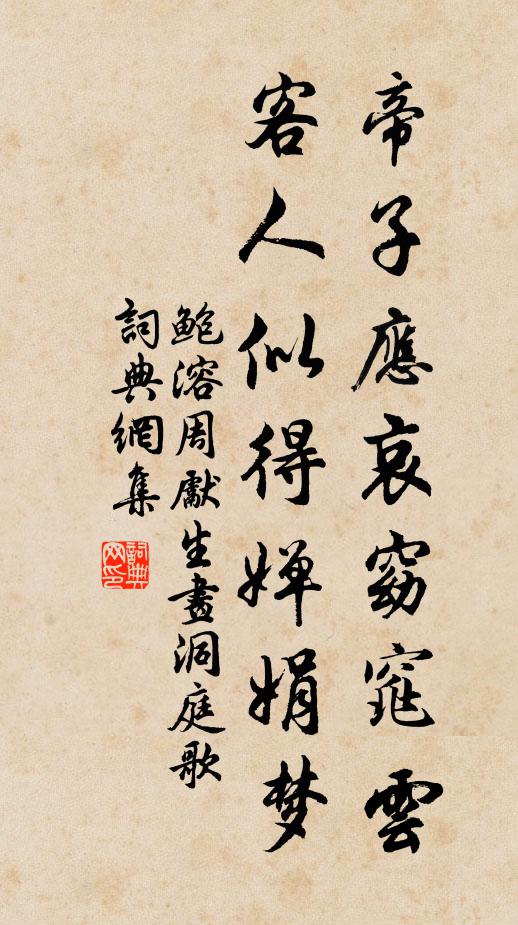 帝子應哀窈窕雲
客人似得嬋娟梦
鲍溶周獻生畫洞庭歌
詞典網集
詞典网印